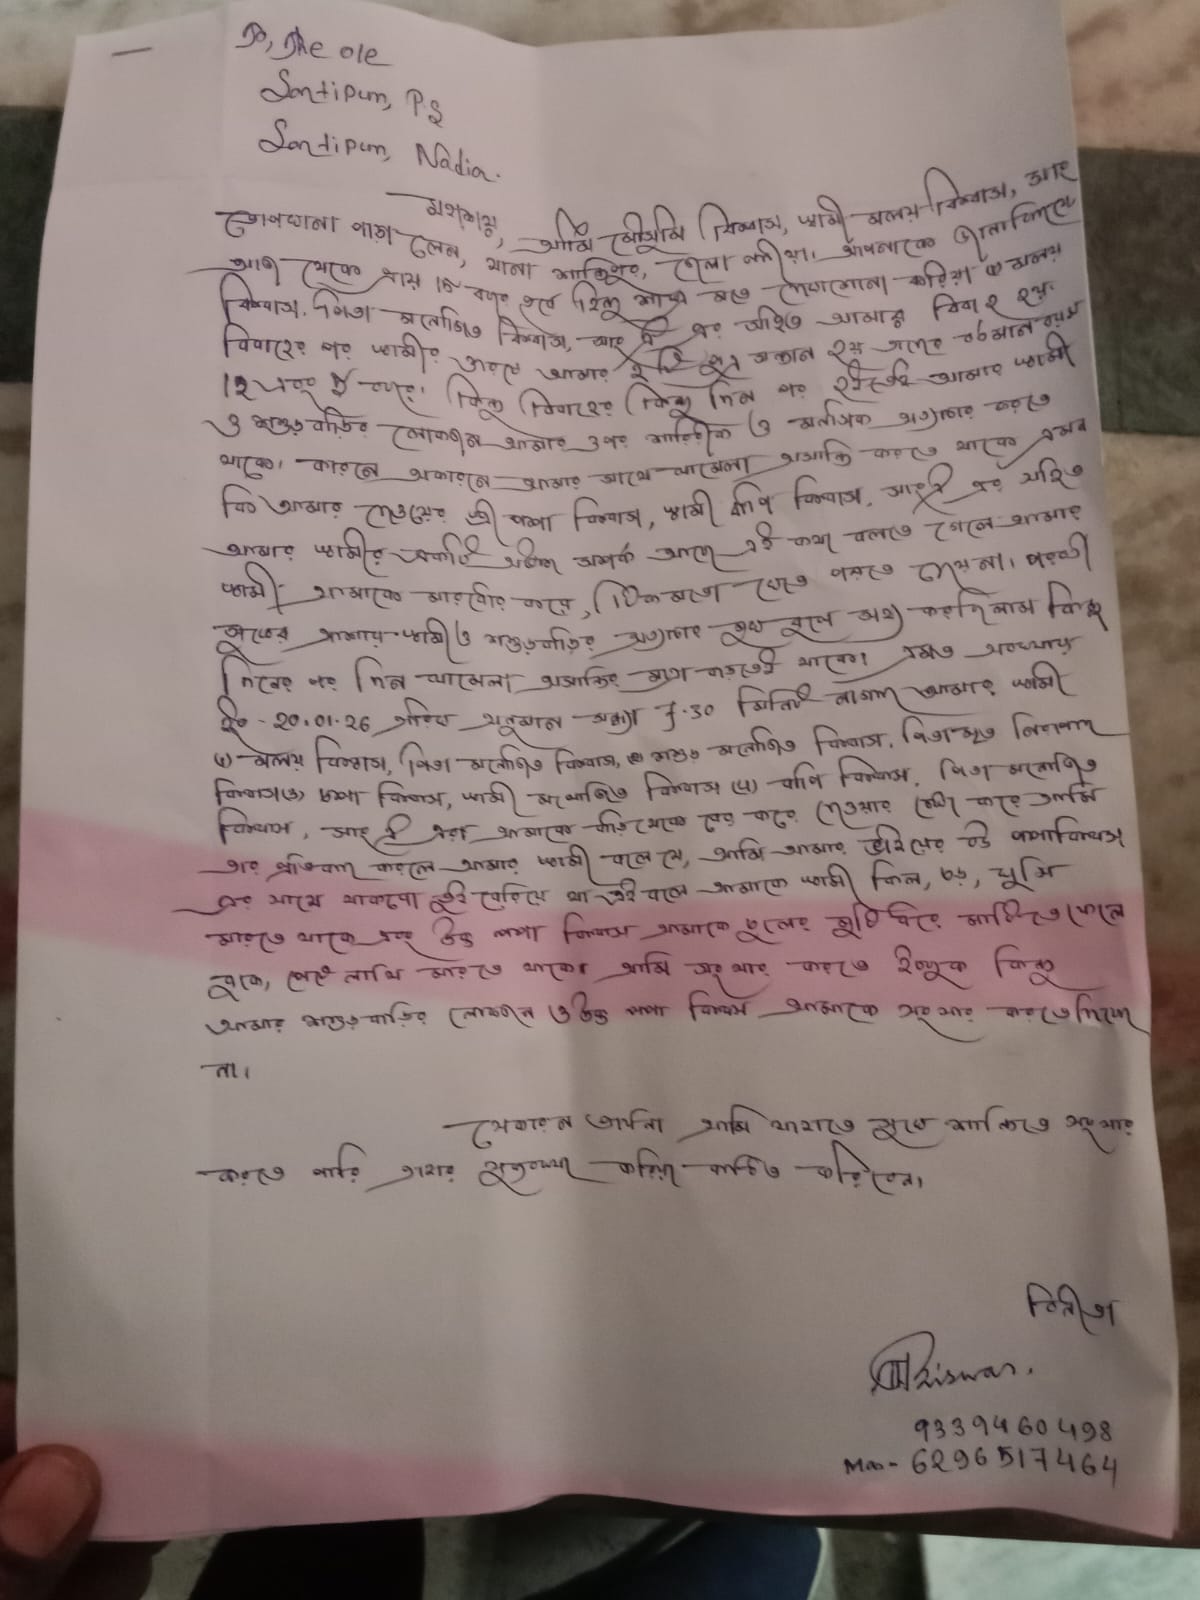 To, The O/C
Santipur, P.S
Santipur, Nadia.
মহাশয়,
আমি মৌসুমি বিশ্বাস, স্বামী মলয় বিশ্বাস, সাং
তোপখানা পাড়া লেন, থানা শান্তিপুর, জেলা নদীয়া। আপনাকে জানাইতেছি
আজ থেকে প্রায় ১৮ বৎসর পূর্বে হিন্দু শাস্ত্র মতে দেখাশোনা করিয়া মলয়
বিশ্বাস, পিতা মনোজিত বিশ্বাস, সাং ঐ এর সহিত আমার বিবাহ হয়।
বিবাহের পর স্বামীর ঔরসে আমার ২টি পুত্র সন্তান হয় তাদের বর্তমান বয়স
১২ এবং ৮ বৎসর। কিন্তু বিবাহের কিছু দিন পর হইতেই আমার স্বামী
ও শশুড়বাড়ির লোকজন আমার উপর শারিরীক ও মানসিক অত্যাচার করতে
থাকে। কারনে অকারনে আমার সাথে ঝামেলা অশান্তি করতে থাকে এমন
কি আমার দেওরের স্ত্রী পম্পা বিশ্বাস, স্বামী বাপি বিশ্বাস, সাং ঐ এর সহিত
আমার স্বামীর একটি অবৈধ সম্পর্ক আছে এই কথা বলতে গেলে আমার
স্বামী আমাকে মারধোর করে, ঠিকমতো খেতে পরতে দেয় না। পরবর্তী
সুখের আশায় স্বামী ও শশুড়বাড়ির অত্যাচার মুখ বুজে সহ্য করছিলাম কিন্তু
দিনের পর দিন ঝামেলা অশান্তির মাত্রা বাড়তেই থাকে। এমত অবস্থায়
ইং - 20.01.26 তারিখ অনুমান সন্ধ্যা 7.30 মিনিট নাগাদ আমার স্বামী
মলয় বিশ্বাস, পিতা মনোজিত বিশ্বাস, শশুড় মনোজিত বিশ্বাস, পিতা মৃত
বিশ্বাস বিশ্বাস, স্বামী মনোজিত বিশ্বাস বাপি বিশ্বাস, পিতা মনোজিত
বিশ্বাস, সাং ঐ এরা আমাকে বাড়ি থেকে বের করে দেওয়ার চেষ্টা করে আমি
তার প্রতিবাদ করলে আমার স্বামী বলে যে, আমি আমার ভাইয়ের বউ পম্পা বিশ্বাস
এর সাথে থাকবো তুই বেরিয়ে যা এই বলে আমাকে স্বামী কিল, চড়, ঘুসি
মারতে থাকে এবং উক্ত পম্পা বিশ্বাস আমাকে চুলের মুঠি ধরে মাটিতে ফেলে
বুকে, পেটে লাথি মারতে থাকে। আমি সংসার করতে ইচ্ছুক কিন্তু
আমার শশুড়বাড়ির লোকজন ও উক্ত পম্পা বিশ্বাস আমাকে সংসার করতে দিচ্ছে
না।
সেকারন প্রার্থনা আমি যাহাতে সুখে শান্তিতে সংসার
করতে পারি তাহার সুব্যবস্থা করিয়া বাধিত করিবেন।
বিনীতা
MBiswas.
9339460498
Mob - 6296517464